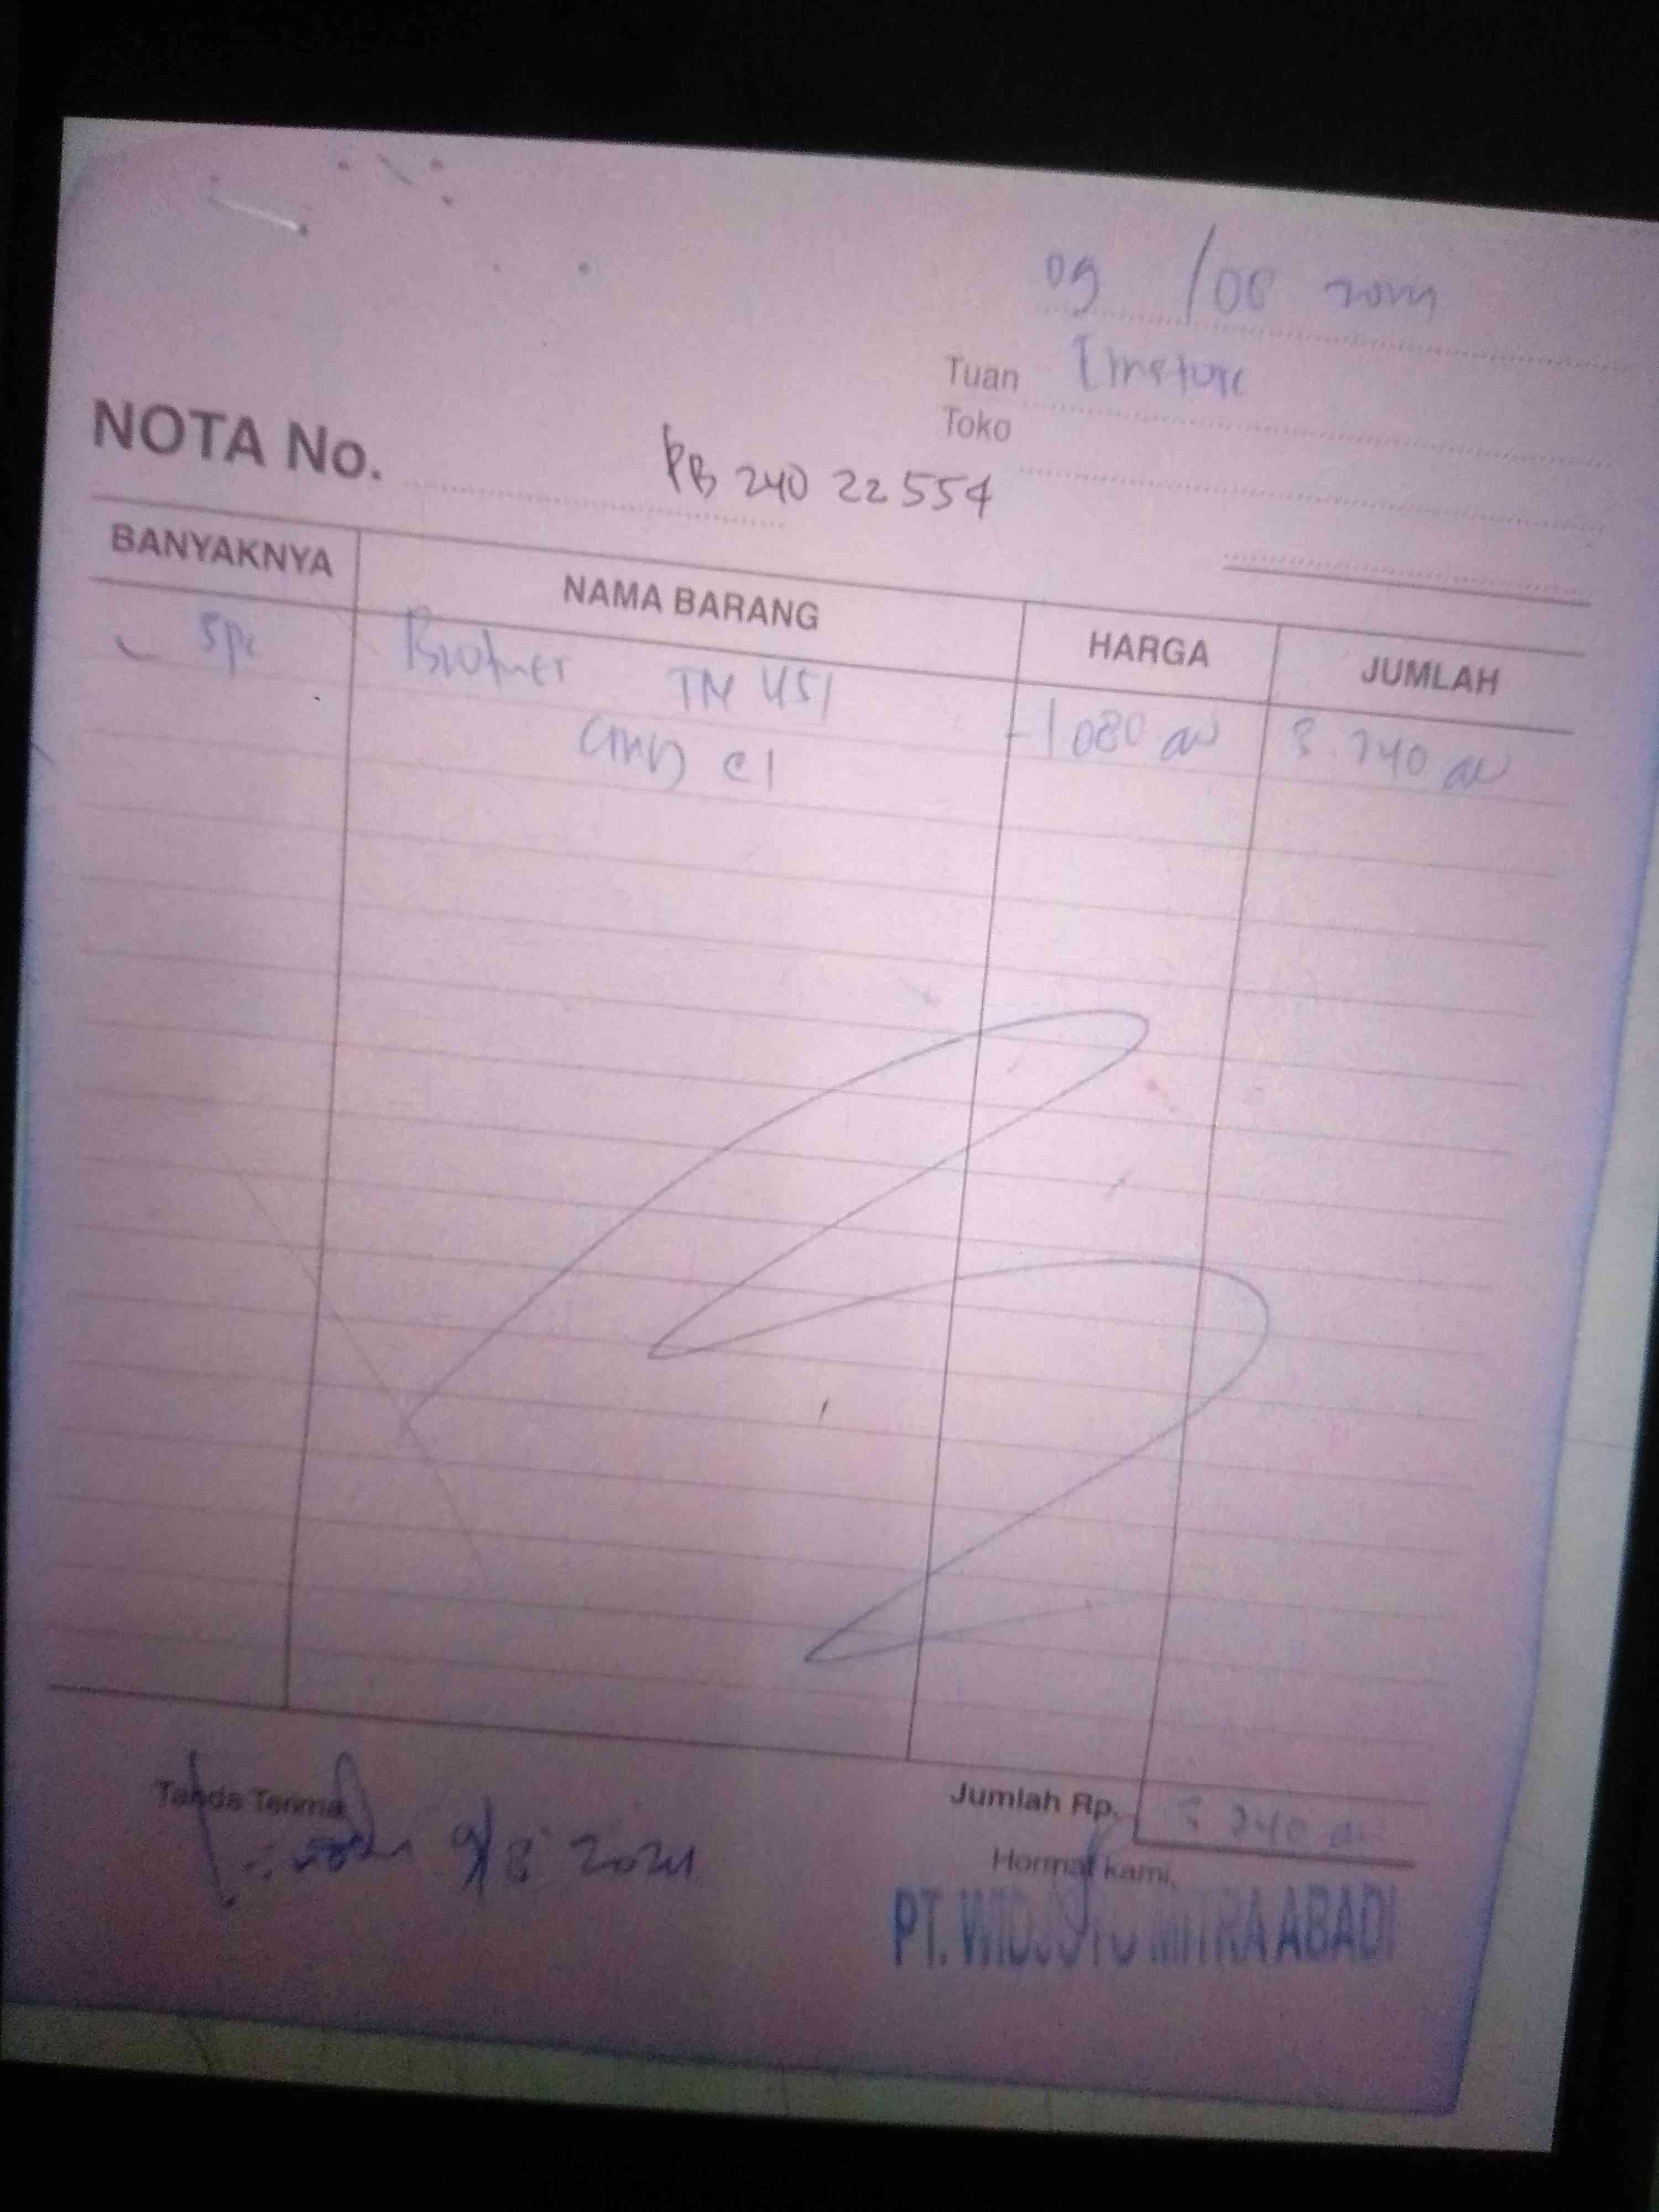 09 /08 2024
Tuan
Toko
NOTA No. PB 240 22554
BANYAKNYA NAMA BARANG HARGA JUMLAH
Brother TN 451 1.080 3.240
Tanda Terima 9/8 2024
Jumlah Rp. 3.240
Hormat kami,
PT. MITRA ABADI